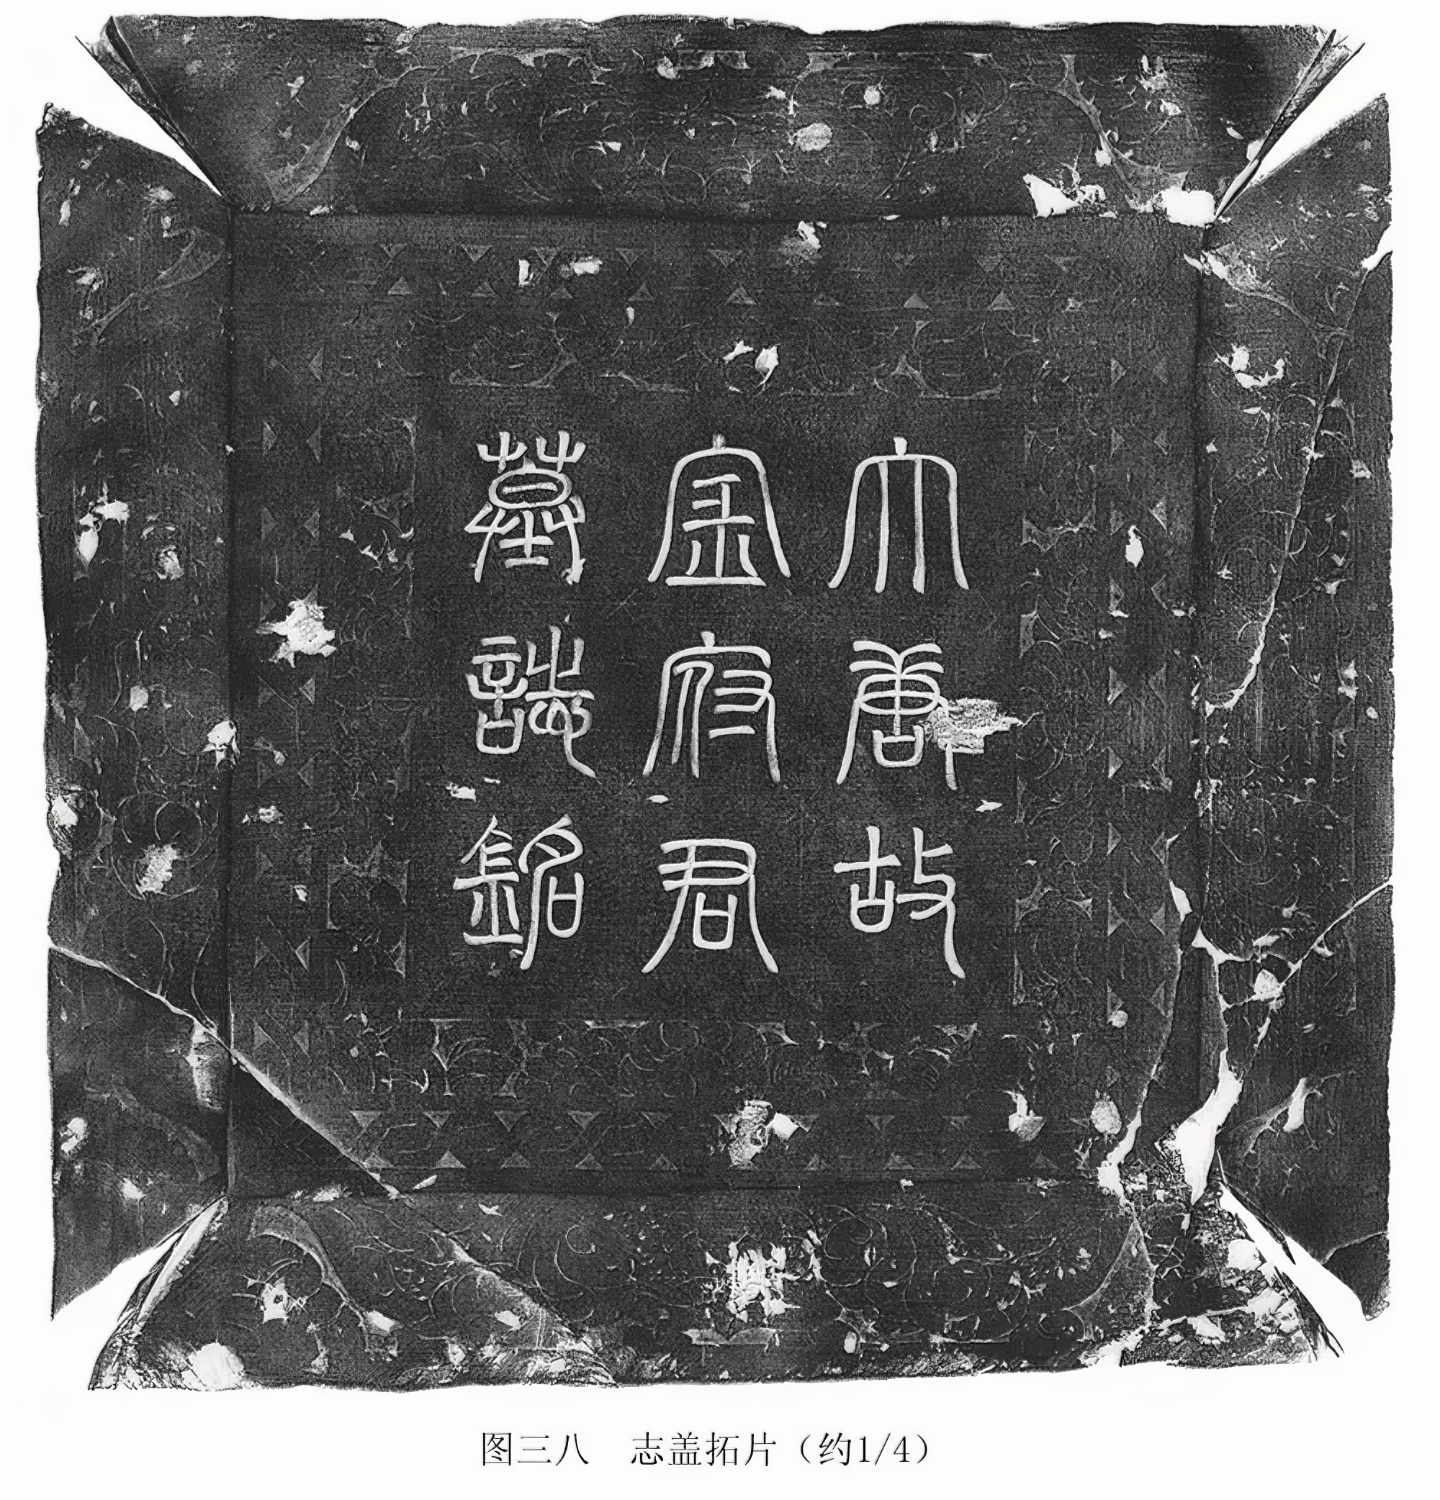 大唐故
金府君
墓誌銘
图三八　志盖拓片（约1/4）